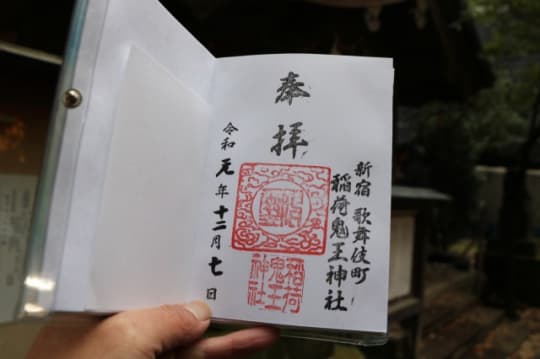 奉拝
新宿 歌舞伎町
稲荷鬼王神社
稲荷
鬼王
神社
令和元年十二月七日